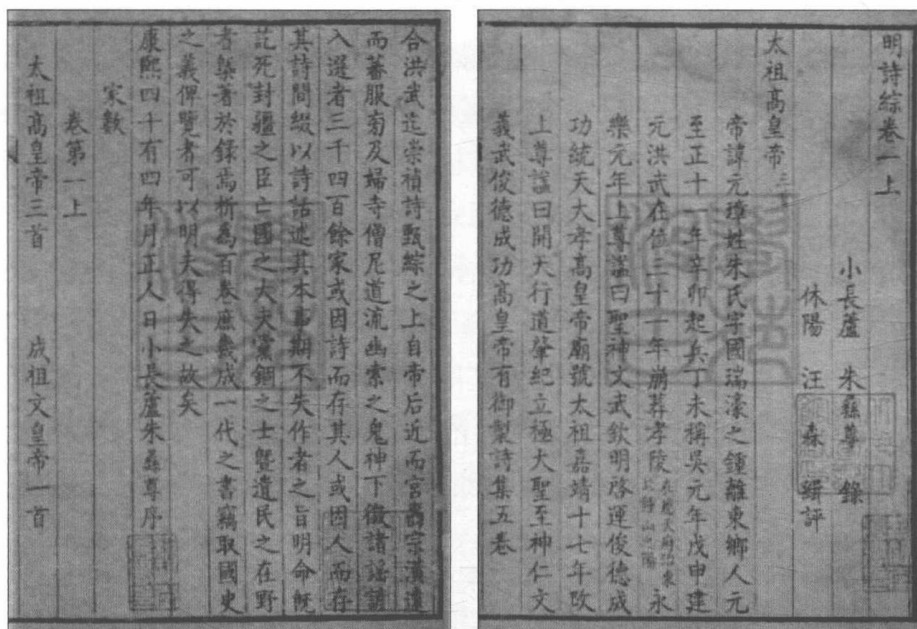 明詩綜卷一上
小長蘆 朱彝尊 錄
休陽 汪 森 緝評
太祖高皇帝三首
帝諱元璋姓朱氏字國瑞濠之鍾離東鄉人元
至正十一年辛卯起兵丁未稱吳元年戊申建
元洪武在位三十一年崩葬孝陵在應天府治東北鍾山之陽永
樂元年上尊諡曰聖神文武欽明啓運俊德成
功統天大孝高皇帝廟號太祖嘉靖十七年改
上尊諡曰開天行道肇紀立極大聖至神仁文
義武俊德成功高皇帝有御製詩集五卷
合洪武迄崇禎詩甄綜之上自帝后近而宮壼宗潢遠
而蕃服旁及婦寺僧尼道流幽索之鬼神下徵諸謡諺
入選者三千四百餘家或因詩而存其人或因人而存
其詩間綴以詩話述其本事期不失作者之旨明命既
訖死封疆之臣亡國之大夫黨錮之士曁遺民之在野
者槩著於錄焉析為百卷庶幾成一代之書竊取國史
之義俾覽者可以明夫得失之故矣
康熙四十有四年月正人日小長蘆朱彝尊序
家數
卷第一上
太祖高皇帝三首 成祖文皇帝一首